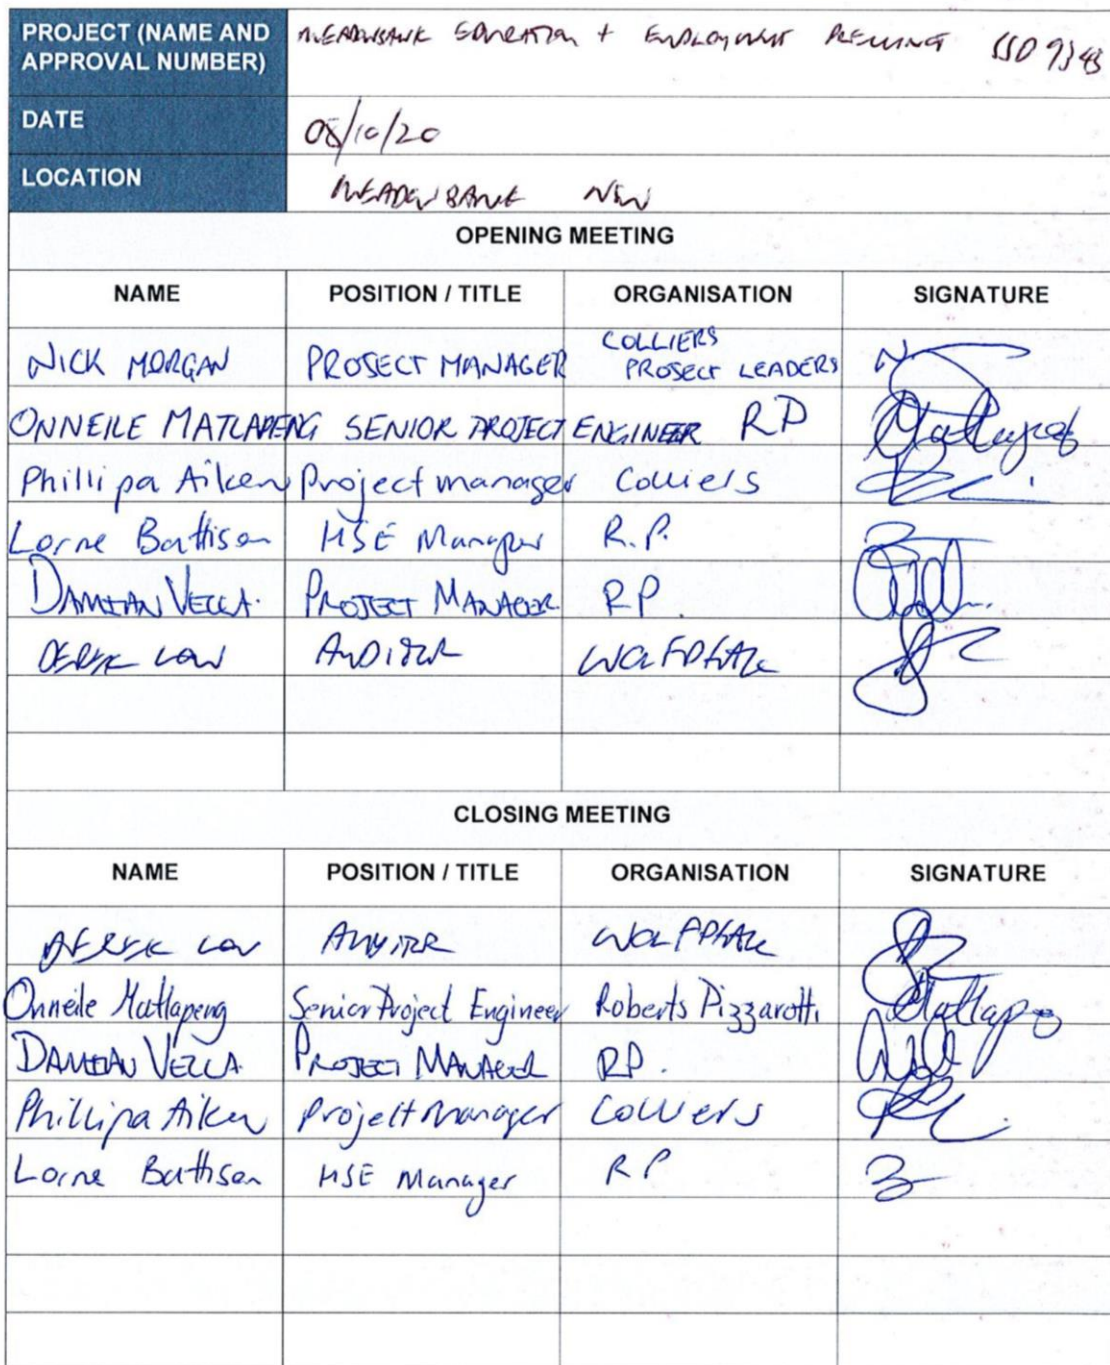 PROJECT (NAME AND APPROVAL NUMBER) MEADOWBANK EDUCATION + EMPLOYMENT PRECINCT SSD 9343
DATE 08/10/20
LOCATION MEADOWBANK NSW
OPENING MEETING
NAME POSITION / TITLE ORGANISATION SIGNATURE
NICK MORGAN PROJECT MANAGER COLLIERS PROJECT LEADERS
ONNEILE MATLAPENG SENIOR PROJECT ENGINEER RP
Phillipa Aiken Project manager Colliers
Lorne Battisen HSE Manager R.P.
DAMIAN VELLA. PROJECT MANAGER RP.
DEREK LOW AUDITOR WOLFPEAK
CLOSING MEETING
NAME POSITION / TITLE ORGANISATION SIGNATURE
DEREK LOW AUDITOR WOLFPEAK
Onneile Matlapeng Senior Project Engineer Roberts Pizzarotti
DAMIAN VELLA. PROJECT MANAGER RP.
Phillipa Aiken Project manager Colliers
Lorne Battisen HSE Manager RP